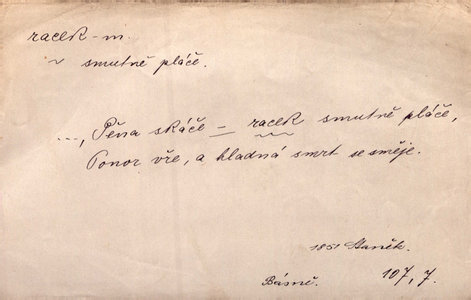 racek-m.
~ smutně pláče.
..., Pěna skáče – racek smutně pláče,
Ponor vře, a hladná smrt se směje.
1851 Staněk.
Básně. 107, 7.